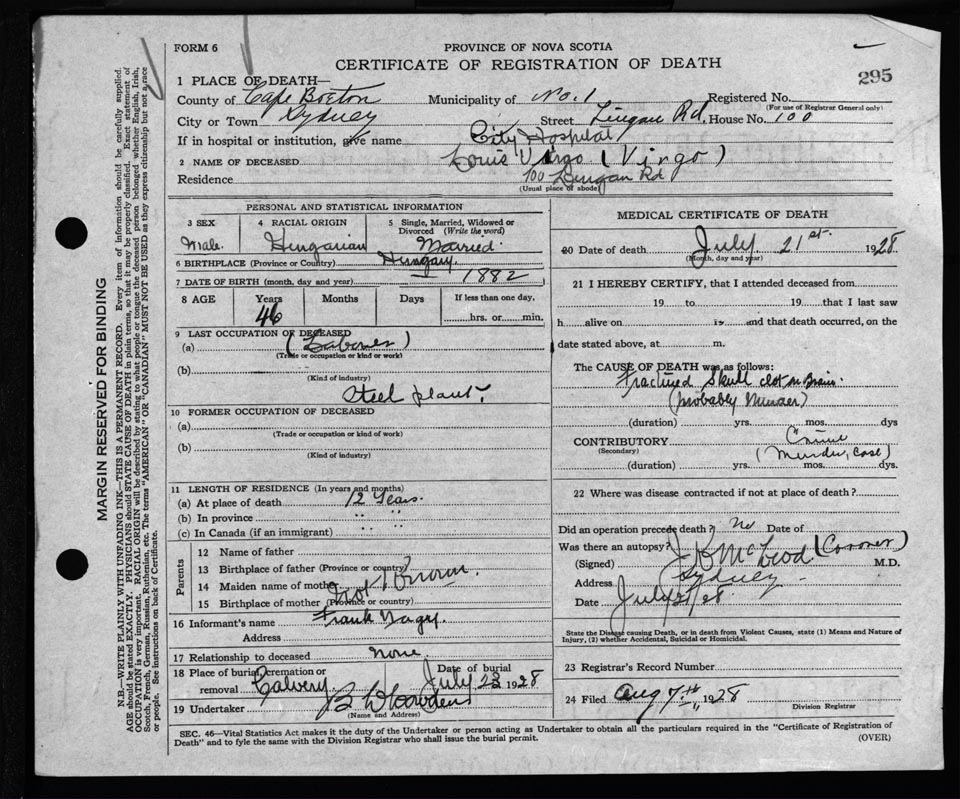 FORM 6
PROVINCE OF NOVA SCOTIA
CERTIFICATE OF REGISTRATION OF DEATH
295
1 PLACE OF DEATH—
County of Cape Breton Municipality of No. 1 Registered No.
(For use of Registrar General only)
City or Town Sydney Street Lingan Rd. House No. 100
If in hospital or institution, give name City Hospital
2 NAME OF DECEASED Louis Virgo (Virgo)
Residence 100 Lingan Rd
(Usual place of abode)
PERSONAL AND STATISTICAL INFORMATION
3 SEX 4 RACIAL ORIGIN 5 Single, Married, Widowed or Divorced (Write the word)
Male. Hungarian Married.
6 BIRTHPLACE (Province or Country) Hungary.
7 DATE OF BIRTH (month, day and year) 1882
8 AGE Years Months Days If less than one day,
46 hrs. or min.
9 LAST OCCUPATION OF DECEASED
(a) (Laborer)
(Trade or occupation or kind or work)
(b)
(Kind of industry)
Steel plant.
10 FORMER OCCUPATION OF DECEASED
(a)
(Trade or occupation or kind of work)
(b)
(Kind of industry)
11 LENGTH OF RESIDENCE (In years and months)
(a) At place of death 12 Years.
(b) In province " "
(c) In Canada (if an immigrant) " "
Parents
12 Name of father
13 Birthplace of father (Province or country)
14 Maiden name of mother Not Known.
15 Birthplace of mother (Province or country)
16 Informant's name Frank Nagy.
Address
17 Relationship to deceased none.
18 Place of burial, cremation or removal Calvery Date of burial July 23 1928
19 Undertaker
(Name and Address)
MEDICAL CERTIFICATE OF DEATH
20 Date of death July 21st. 1928
(Month, day and year)
21 I HEREBY CERTIFY, that I attended deceased from
19 to 19 that I last saw
h alive on 19 and that death occurred, on the
date stated above, at m.
The CAUSE OF DEATH was as follows:
Fractured Skull clot on Brain.
(probably Murder)
(duration) yrs. mos. dys
CONTRIBUTORY Crime
(Secondary) (Murder, Case)
(duration) yrs. mos. dys.
22 Where was disease contracted if not at place of death?
Did an operation precede death? no Date of
Was there an autopsy?
(Signed) McLeod (Coroner) M.D.
Address Sydney
Date July 21/28
State the Disease causing Death, or in death from Violent Causes, state (1) Means and Nature of
Injury, (2) whether Accidental, Suicidal or Homicidal.
23 Registrar's Record Number
24 Filed Aug 7th, 1928
Division Registrar
SEC. 46—Vital Statistics Act makes it the duty of the Undertaker or person acting as Undertaker to obtain all the particulars required in the "Certificate of Registration of
Death" and to fyle the same with the Division Registrar who shall issue the burial permit. (OVER)
MARGIN RESERVED FOR BINDING
N.B.—WRITE PLAINLY WITH UNFADING INK—THIS IS A PERMANENT RECORD. Every item of information should be carefully supplied.
AGE should be stated EXACTLY. PHYSICIANS should STATE CAUSE OF DEATH in plain terms, so that it may be properly classified. Exact statement of
OCCUPATION is very important. RACIAL ORIGIN will be described by stating to what people or tongue the deceased person belonged whether English, Irish,
Scotch, French, German, Russian, Ruthenian, etc. The terms "AMERICAN" or "CANADIAN" MUST NOT BE USED as they express citizenship but not a race
or people. See instructions on back of Certificate.